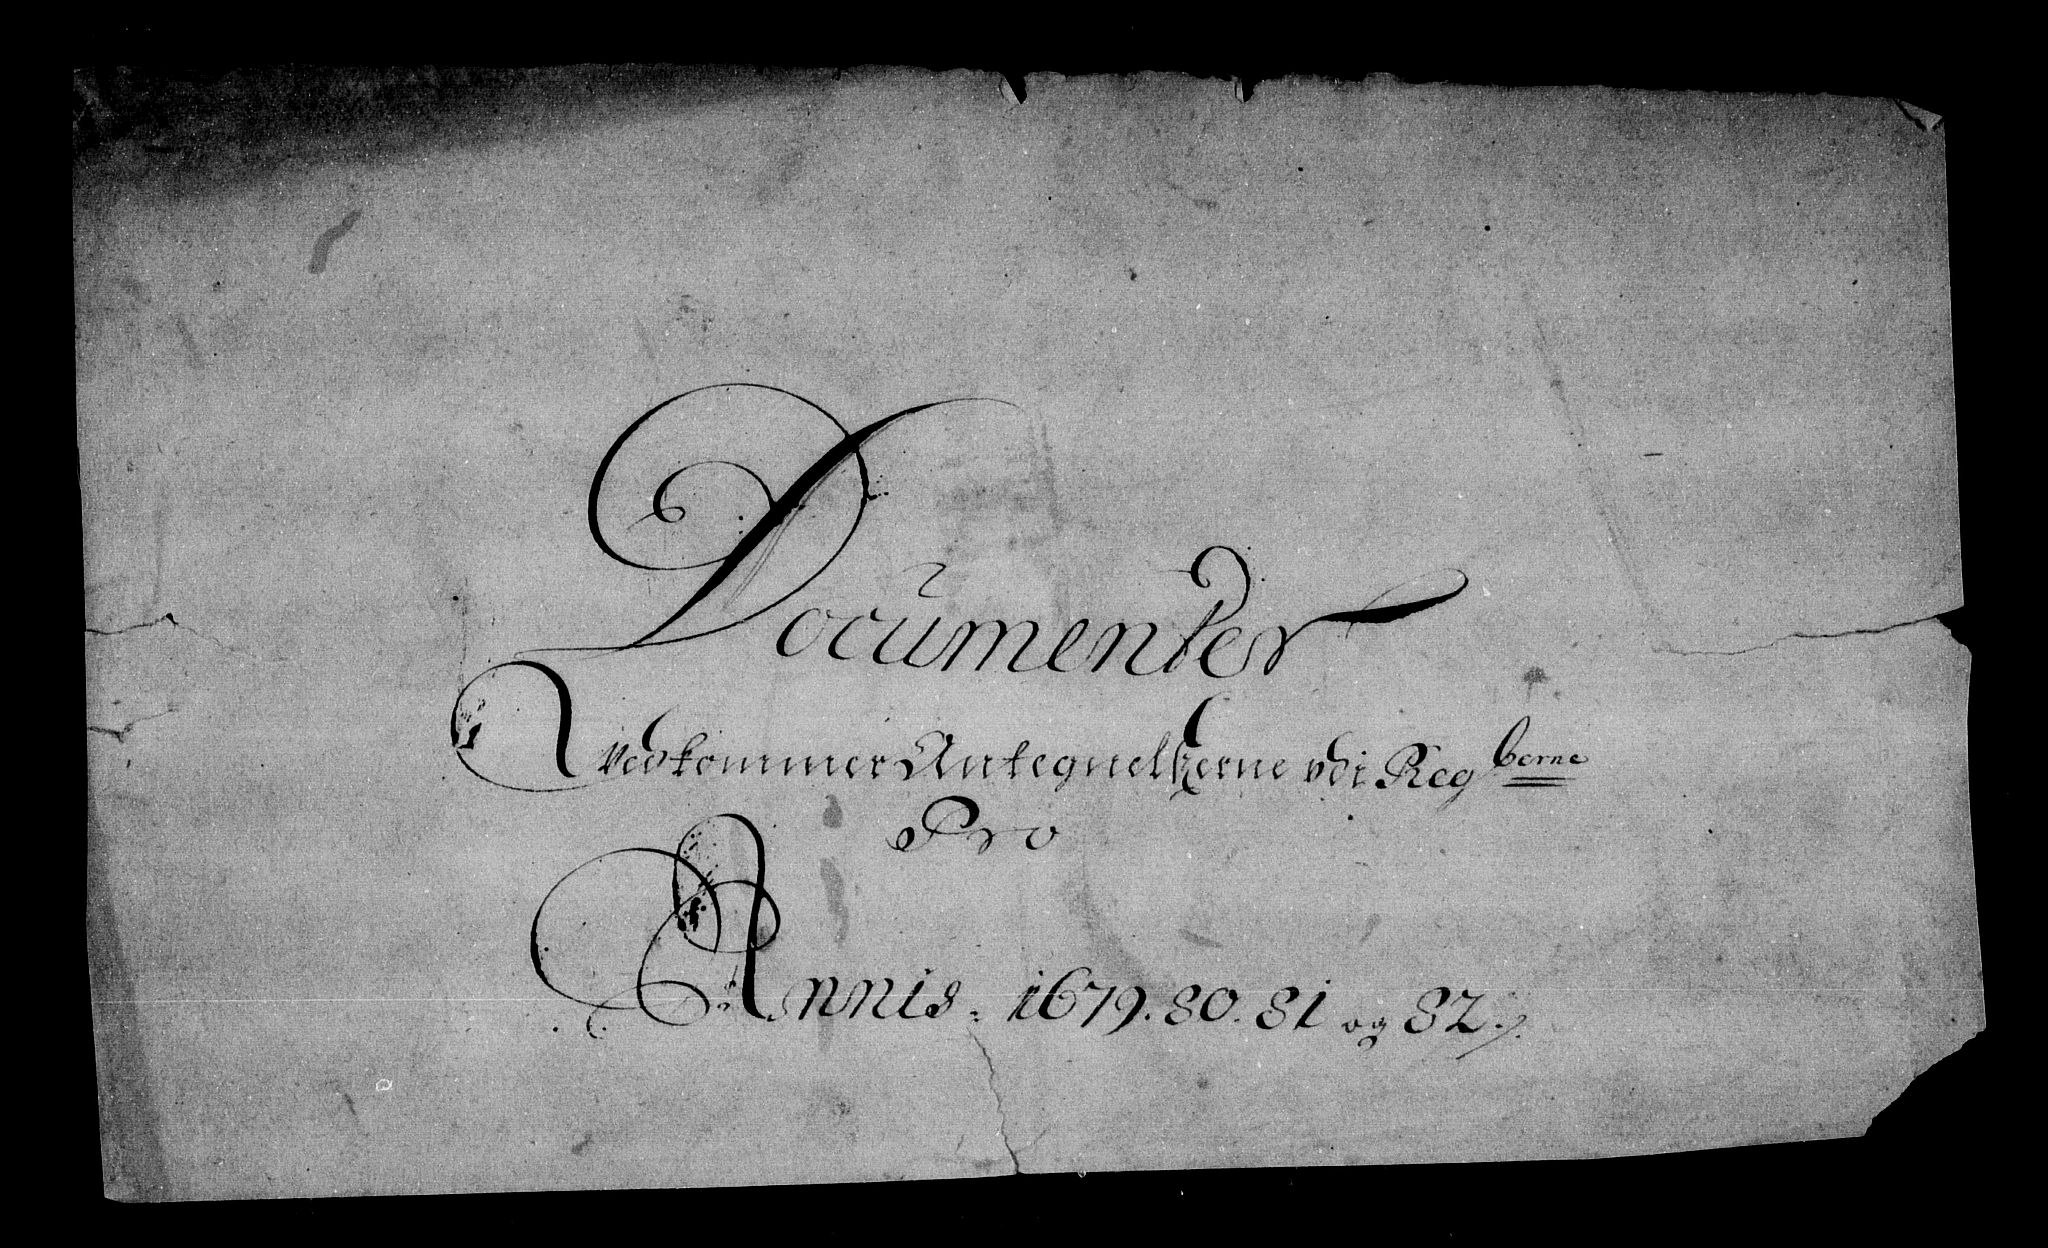 Documenter
Vedkommer Antegnelßerne vdi Regberne
Pro
Annis. 1679. 80. 81 og 82.